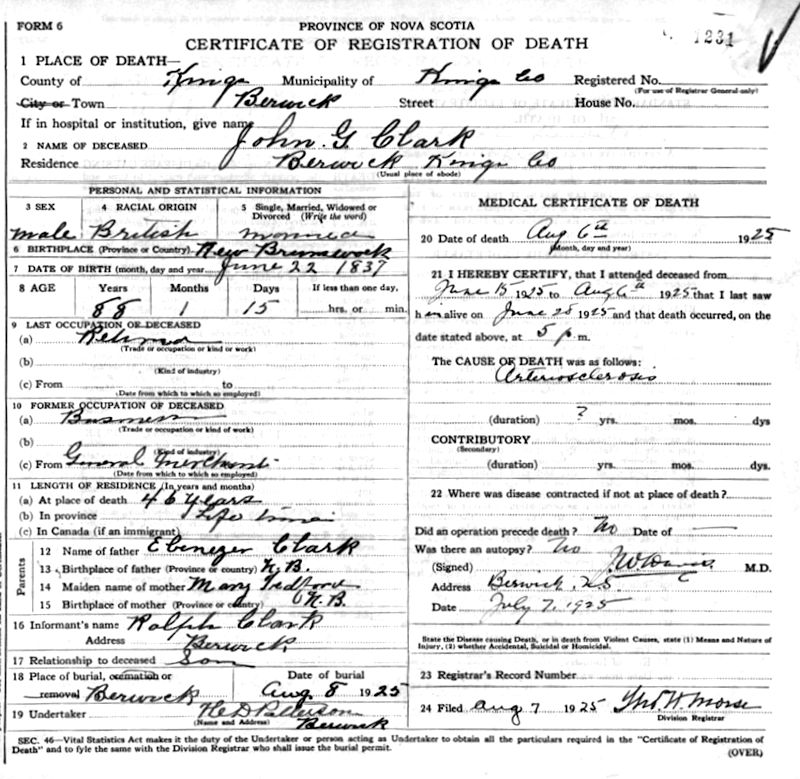 FORM 6
PROVINCE OF NOVA SCOTIA
1231
CERTIFICATE OF REGISTRATION OF DEATH
1 PLACE OF DEATH—
County of Kings Municipality of Kings Co Registered No.
(For use of Registrar General only)
City or Town Berwick Street House No.
If in hospital or institution, give name
2 NAME OF DECEASED John G Clark
Residence Berwick Kings Co
(Usual place of abode)
PERSONAL AND STATISTICAL INFORMATION
3 SEX 4 RACIAL ORIGIN 5 Single, Married, Widowed or Divorced (Write the word)
male British married
6 BIRTHPLACE (Province or Country) New Brunswick
7 DATE OF BIRTH (month, day and year) June 22 1837
8 AGE Years Months Days If less than one day,
88 1 15 hrs. or min.
9 LAST OCCUPATION OF DECEASED
(a) Retired
(Trade or occupation or kind or work)
(b)
(Kind of industry)
(c) From to
(Date from which to which so employed)
10 FORMER OCCUPATION OF DECEASED
(a) Business
(Trade or occupation or kind of work)
(b)
(Kind of industry)
(c) From General Merchant
(Date from which to which so employed)
11 LENGTH OF RESIDENCE (In years and months)
(a) At place of death 46 years
(b) In province Life time
(c) In Canada (if an immigrant)
Parents
12 Name of father Ebenezer Clark
13 Birthplace of father (Province or country) N.B.
14 Maiden name of mother Mary Tedford
15 Birthplace of mother (Province or country) N.B.
16 Informant's name Ralph Clark
Address Berwick
17 Relationship to deceased Son
18 Place of burial, cremation or Date of burial
removal Berwick Aug 8 1925
19 Undertaker
(Name and Address) Berwick
MEDICAL CERTIFICATE OF DEATH
20 Date of death Aug 6th 1925
(Month, day and year)
21 I HEREBY CERTIFY, that I attended deceased from
June 15 1925 to Aug 6th 1925 that I last saw
h im alive on June 28 1925 and that death occurred, on the
date stated above, at 5 p m.
The CAUSE OF DEATH was as follows:
Arteriosclerosis
(duration) ? yrs. mos. dys
CONTRIBUTORY
(Secondary)
(duration) yrs. mos. dys.
22 Where was disease contracted if not at place of death?
Did an operation precede death? No Date of —
Was there an autopsy? No
(Signed) M.D.
Address Berwick, N.S.
Date July 7, 1925
State the Disease causing Death, or in death from Violent Causes, state (1) Means and Nature of
Injury, (2) whether Accidental, Suicidal or Homicidal.
23 Registrar's Record Number
24 Filed Aug 7 1925 Thos. W. Morse
Division Registrar
SEC. 46—Vital Statistics Act makes it the duty of the Undertaker or person acting as Undertaker to obtain all the particulars required in the "Certificate of Registration of
Death" and to fyle the same with the Division Registrar who shall issue the burial permit.
(OVER)